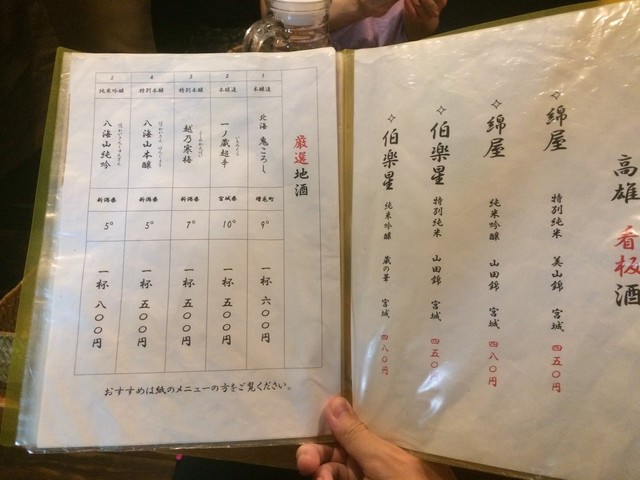 高雄 看板酒
✧綿屋 特別純米 美山錦 宮城 四五〇円
✧綿屋 純米吟醸 山田錦 宮城 四八〇円
✧伯楽星 特別純米 山田錦 宮城 四五〇円
✧伯楽星 純米吟醸 蔵の華 宮城 四八〇円
厳選地酒
1 本醸造 北海 鬼ころし 増毛町 9° 一杯 六〇〇円
2 本醸造 一ノ蔵超辛 宮城県 10° 一杯 五〇〇円
3 特別本醸 越乃寒梅 新潟県 7° 一杯 五〇〇円
4 特別本醸 八海山本醸 新潟県 5° 一杯 五〇〇円
5 純米吟醸 八海山純吟 新潟県 5° 一杯 八〇〇円
おすすめは紙のメニューの方をご覧ください。